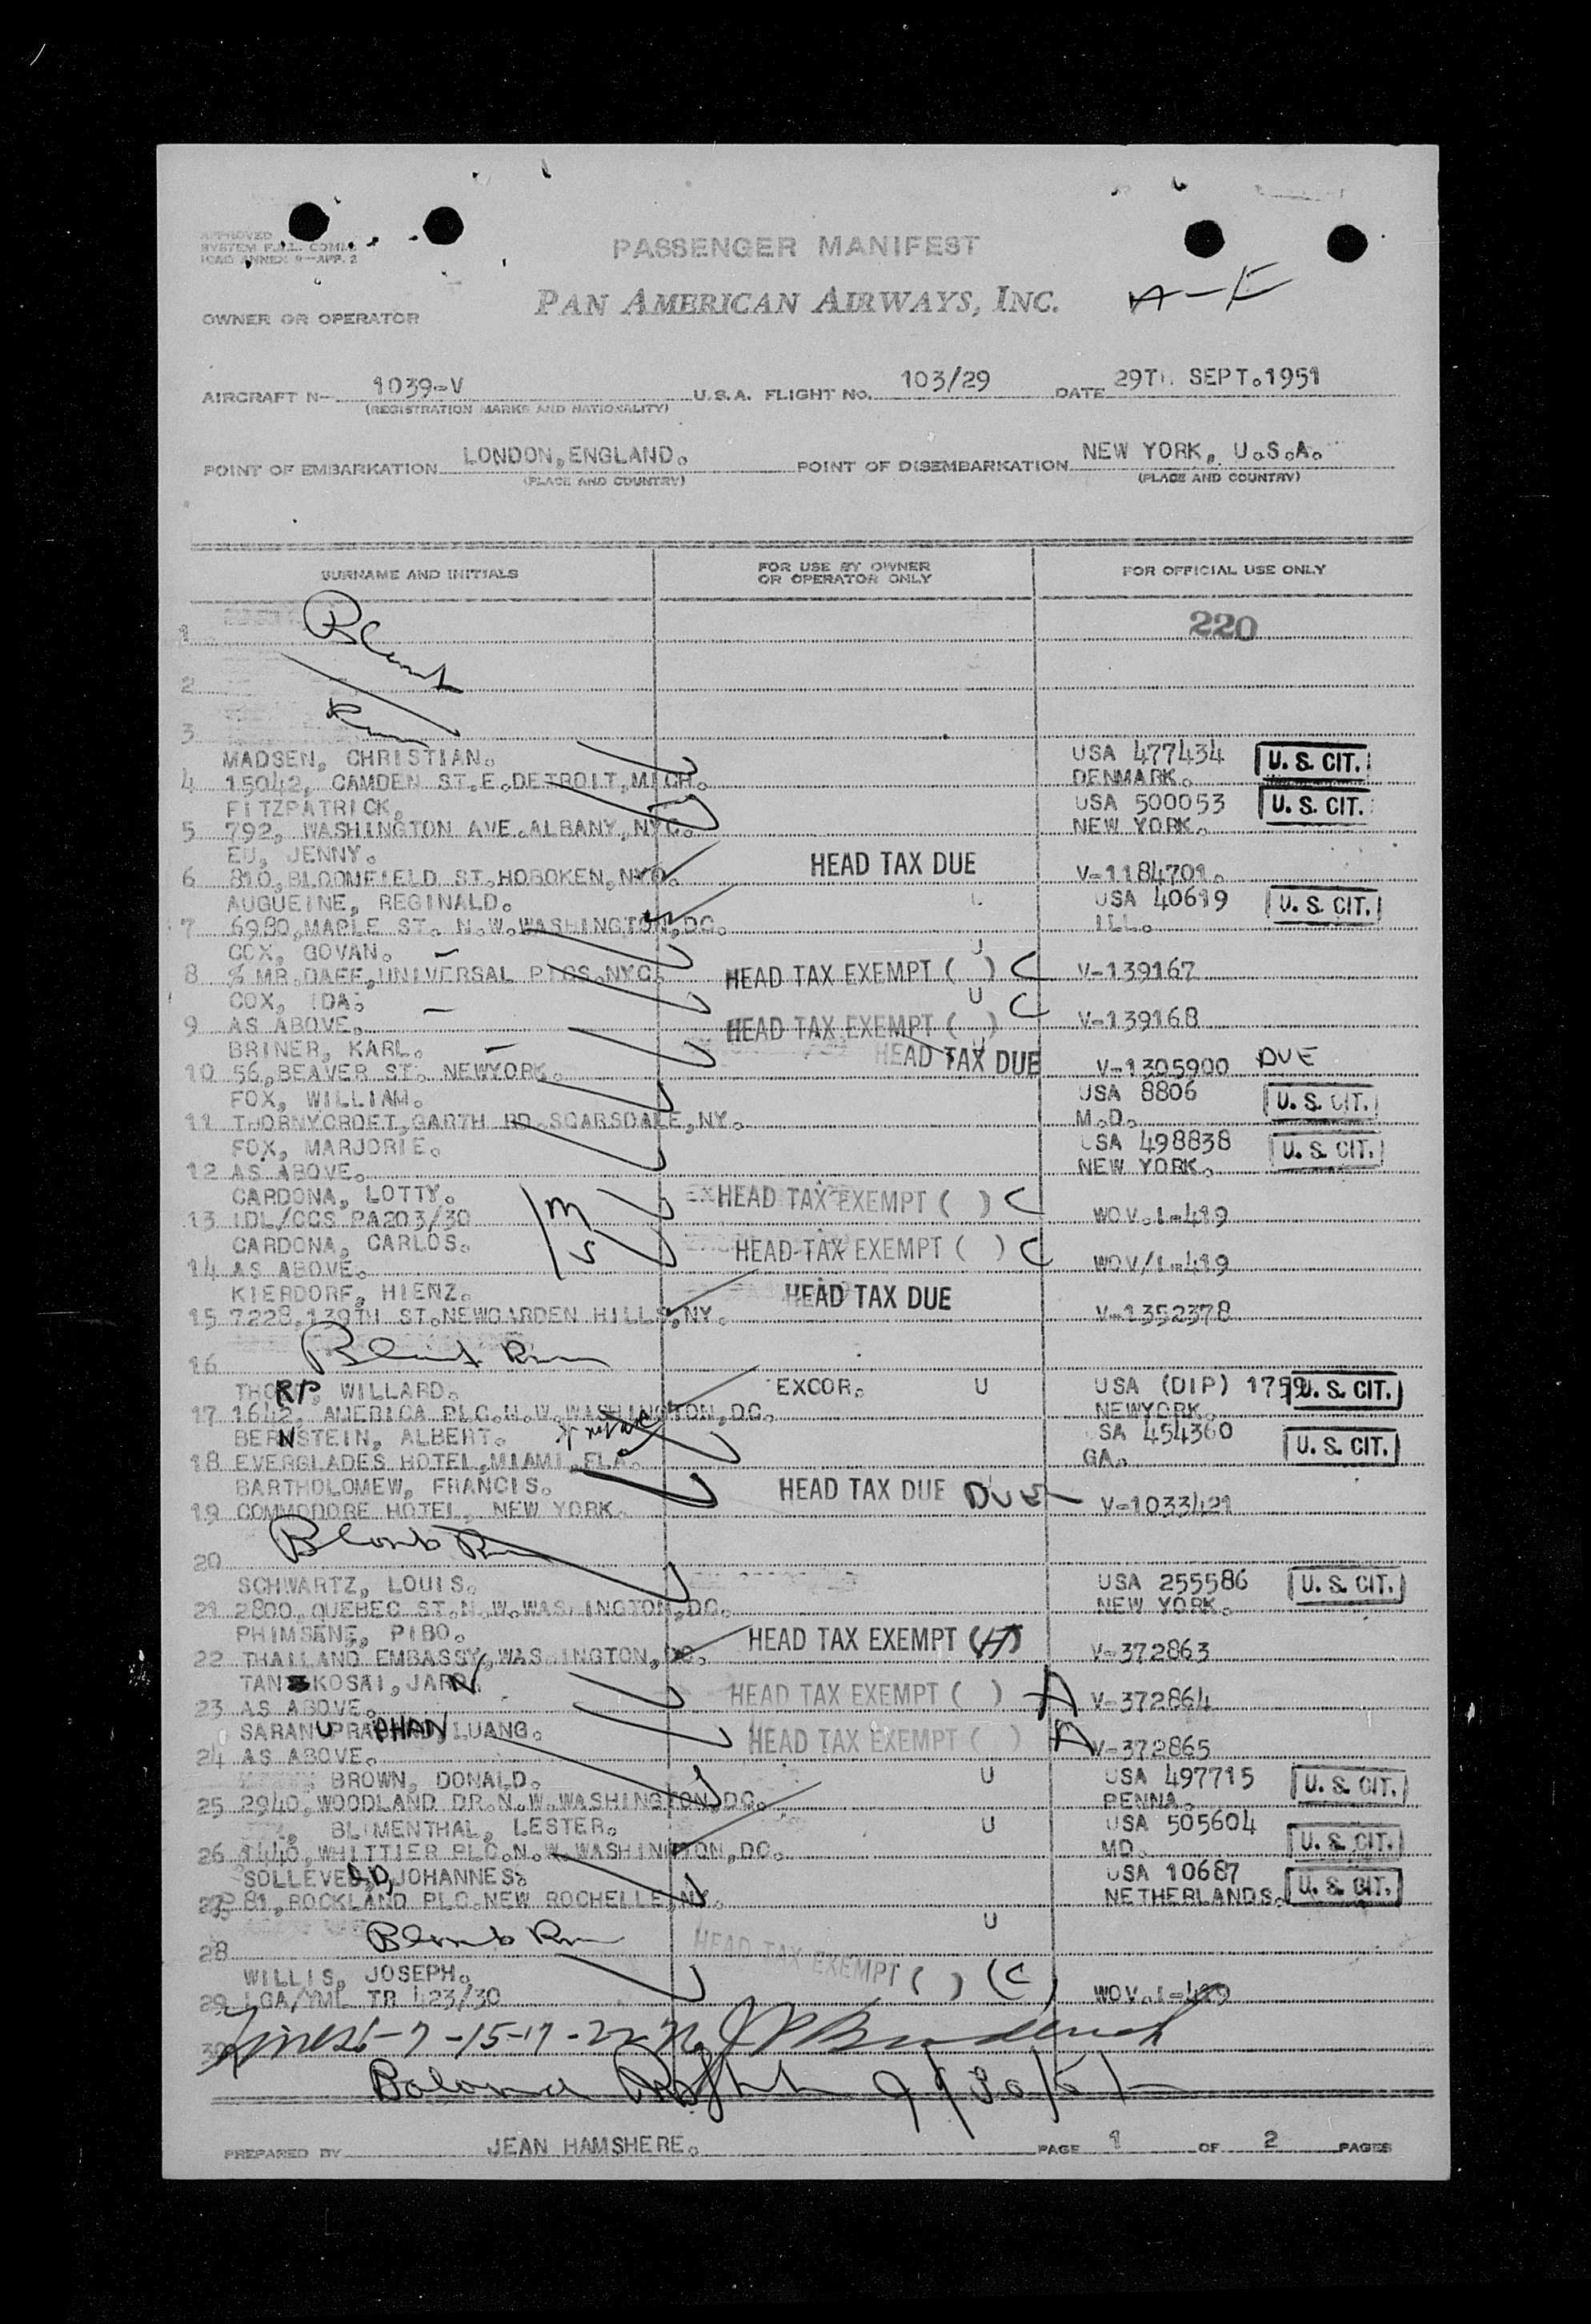 APPROVED
SYSTEM F.A.L. COMM.
ICAO ANNEX 9—APP. 2
PASSENGER MANIFEST
PAN AMERICAN AIRWAYS, INC.
OWNER OR OPERATOR
AIRCRAFT N— 1039-V U.S.A. FLIGHT NO. 103/29 DATE 29TH SEPT.1951
(REGISTRATION MARKS AND NATIONALITY)
POINT OF EMBARKATION LONDON,ENGLAND. POINT OF DISEMBARKATION NEW YORK, U.S.A.
(PLACE AND COUNTRY) (PLACE AND COUNTRY)
SURNAME AND INITIALS FOR USE BY OWNER OR OPERATOR ONLY FOR OFFICIAL USE ONLY
1 220
2
3
MADSEN, CHRISTIAN. USA 477434 U. S. CIT.
4 15042, CAMDEN ST.E.DETROIT,MICH. DENMARK.
FITZPATRICK, USA 500053 U. S. CIT.
5 792, WASHINGTON AVE.ALBANY,NYC. NEW YORK.
EU, JENNY. HEAD TAX DUE
6 810,BLOOMFIELD ST.HOBOKEN,NYC. V-1184701.
AUGUEINE, REGINALD. USA 40619 U. S. CIT.
7 6980,MAPLE ST. N.W.WASHINGTON,DC. ILL.
COX, GOVAN. U
8 % MR.DAEF,UNIVERSAL PICS.NYC. HEAD TAX EXEMPT ( ) C V-139167
COX, IDA. U C
9 AS ABOVE. HEAD TAX EXEMPT ( ) V-139168
BRINER, KARL. HEAD TAX DUE
10 56,BEAVER ST. NEWYORK. V-1305900 DUE
FOX, WILLIAM. USA 8806 U. S. CIT.
11 THORNYCROET,GARTH RD.SCARSDALE,NY. M.D.
FOX, MARJORIE. USA 498838 U. S. CIT.
12 AS ABOVE. NEW YORK.
CARDONA, LOTTY. HEAD TAX EXEMPT ( ) C
13 IDL/CCS PA203/30 WOV.I-419
CARDONA, CARLOS. HEAD TAX EXEMPT ( ) C
14 AS ABOVE. WOV/I-419
KIERDORF, HIENZ. HEAD TAX DUE
15 7228,139TH ST.NEWGARDEN HILLS,NY. V-1352378
16
THORP, WILLARD. EXCOR. U USA (DIP) 1759 U. S. CIT.
17 1642, AMERICA PLC.N.W.WASHINGTON,DC. NEWYORK.
BERNSTEIN, ALBERT. USA 454360 U. S. CIT.
18 EVERGLADES HOTEL,MIAMI,FLA. GA.
BARTHOLOMEW, FRANCIS. HEAD TAX DUE DUE
19 COMMODORE HOTEL, NEW YORK. V-1033421
20
SCHWARTZ, LOUIS. USA 255586 U. S. CIT.
21 2800,QUEBEC ST.N.W.WASHINGTON,DC. NEW YORK.
PHIMSENE, PIBO. HEAD TAX EXEMPT (A)
22 THAILAND EMBASSY,WASHINGTON,DC. V-372863
HEAD TAX EXEMPT ( ) A
23 AS ABOVE. V-372864
SARANUPRAPHAN,LUANG. HEAD TAX EXEMPT ( ) A
24 AS ABOVE. V-372865
BROWN, DONALD. U USA 497715 U. S. CIT.
25 2940,WOODLAND DR.N.W.WASHINGTON,DC. PENNA.
BLUMENTHAL, LESTER. U USA 505604 U. S. CIT.
26 1440,WHITTIER PLC.N.W.WASHINGTON,DC. MD.
JOHANNES. USA 10687 U. S. CIT.
27 81,ROCKLAND PLC.NEW ROCHELLE,NY. NETHERLANDS.
U
28
WILLIS, JOSEPH. HEAD TAX EXEMPT ( ) (C)
29 LGA/YML TR 423/30 WOV.I-419
30
PREPARED BY JEAN HAMSHERE. PAGE 1 OF 2 PAGES